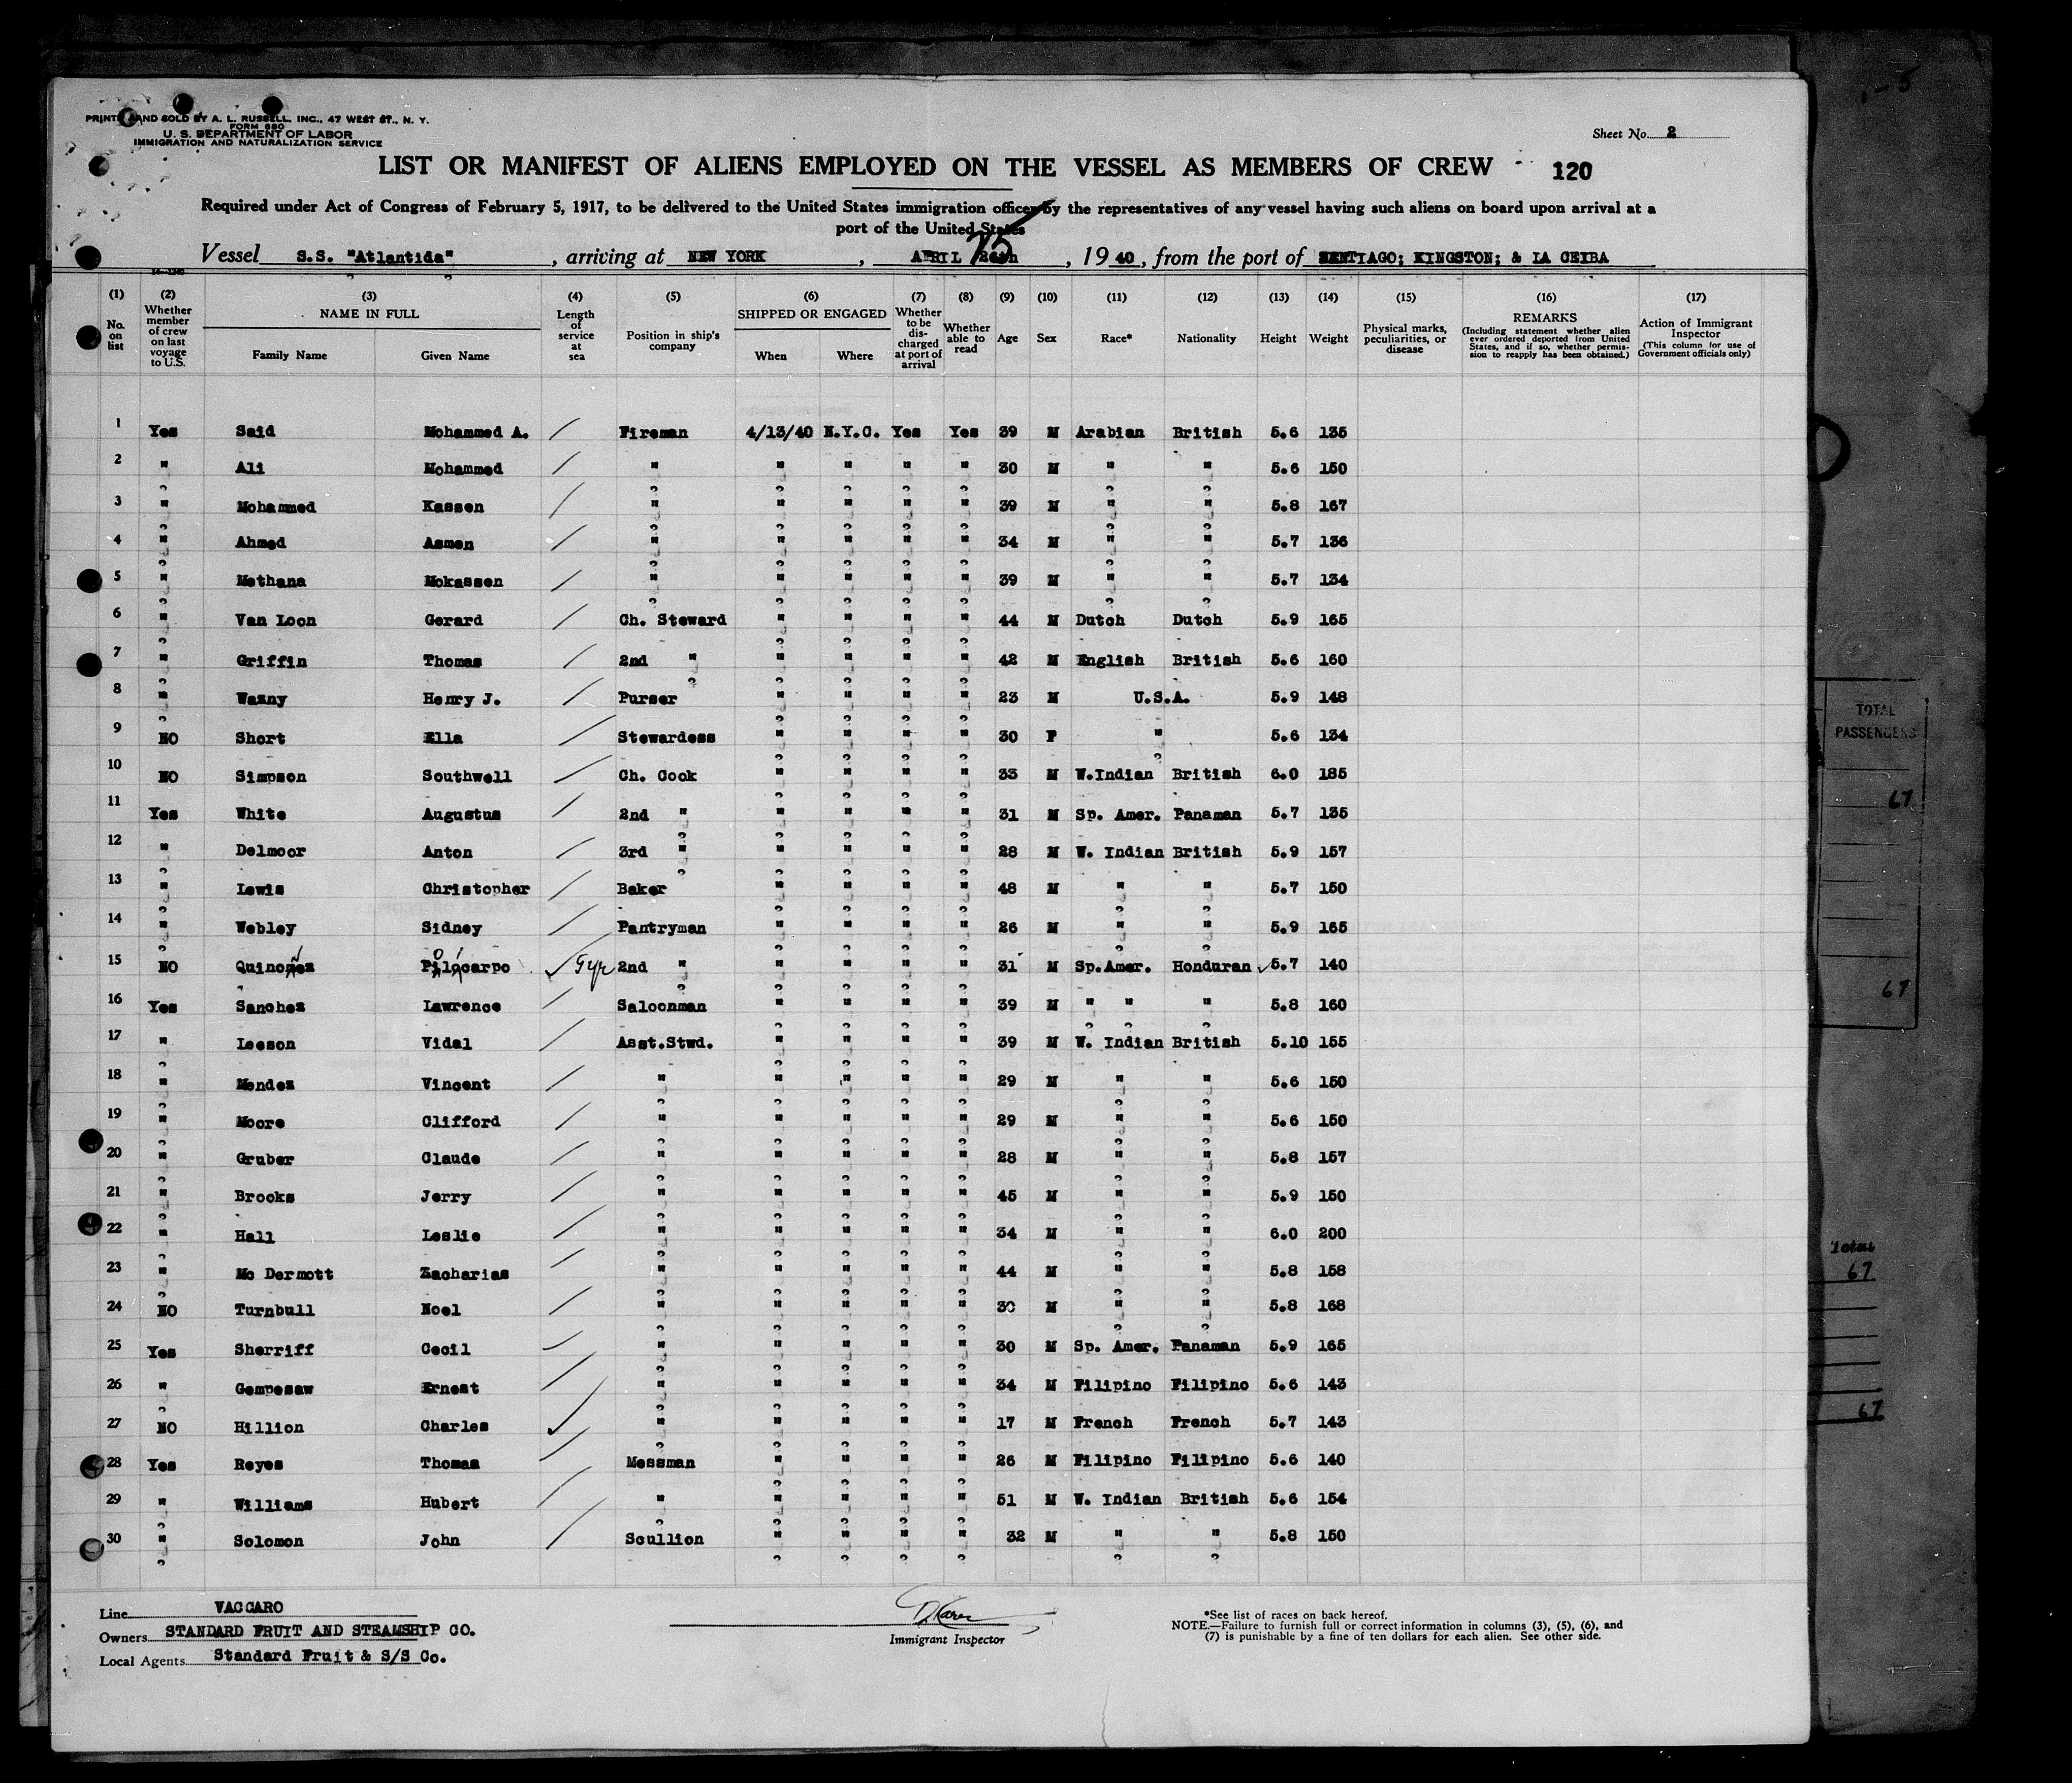 PRINTED AND SOLD BY A. L. RUSSELL, INC., 47 WEST ST., N. Y.
FORM 680
U. S. DEPARTMENT OF LABOR
IMMIGRATION AND NATURALIZATION SERVICE
Sheet No. 2
LIST OR MANIFEST OF ALIENS EMPLOYED ON THE VESSEL AS MEMBERS OF CREW 120
Required under Act of Congress of February 5, 1917, to be delivered to the United States immigration officer by the representatives of any vessel having such aliens on board upon arrival at a
port of the United States
Vessel S.S. "Atlantida", arriving at NEW YORK, APRIL 25, 1940, from the port of SENTIAGO; KINGSTON; & LA CEIBA
(1) No. on list (2) Whether member of crew on last voyage to U.S. (3) NAME IN FULL Family Name Given Name (4) Length of service at sea (5) Position in ship's company (6) SHIPPED OR ENGAGED When Where (7) Whether to be discharged at port of arrival (8) Whether able to read (9) Age (10) Sex (11) Race* (12) Nationality (13) Height (14) Weight (15) Physical marks, peculiarities, or disease (16) REMARKS (Including statement whether alien ever ordered deported from United States, and if so, whether permission to reapply has been obtained.) (17) Action of Immigrant Inspector (This column for use of Government officials only)
1 Yes Said Mohammed A. Fireman 4/13/40 N.Y.C. Yes Yes 39 M Arabian British 5.6 135
2 " Ali Mohammed " " " " " 30 M " " 5.6 150
3 " Mohammed Kassen " " " " " 39 M " " 5.8 167
4 " Ahmed Asmen " " " " " 34 M " " 5.7 136
5 " Methana Mokassen " " " " " 39 M " " 5.7 134
6 " Van Loon Gerard Ch. Steward " " " " 44 M Dutch Dutch 5.9 165
7 " Griffin Thomas 2nd " " " " " 42 M English British 5.6 160
8 " Wazny Henry J. Purser " " " " 23 M U.S.A. 5.9 148
9 NO Short Ella Stewardess " " " " 30 F " 5.6 134
10 NO Simpson Southwell Ch. Cook " " " " 33 M W.Indian British 6.0 185
11 Yes White Augustus 2nd " " " " " 31 M Sp. Amer. Panaman 5.7 135
12 " Delmoor Anton 3rd " " " " " 28 M W. Indian British 5.9 157
13 " Lewis Christopher Baker " " " " 48 M " " 5.7 150
14 " Webley Sidney Pantryman " " " " 26 M " " 5.9 165
15 NO Quinoñez Policarpo 9yr 2nd " " " " " 31 M Sp.Amer. Honduran 5.7 140
16 Yes Sanchez Lawrence Saloonman " " " " 39 M " " " 5.8 160
17 " Leeson Vidal Asst.Stwd. " " " " 39 M W. Indian British 5.10 155
18 " Mendez Vincent " " " " " 29 M " " 5.6 150
19 " Moore Clifford " " " " " 29 M " " 5.6 150
20 " Gruber Claude " " " " " 28 M " " 5.8 157
21 " Brooks Jerry " " " " " 45 M " " 5.9 150
22 " Hall Leslie " " " " " 34 M " " 6.0 200
23 " Mc Dermott Zacharias " " " " " 44 M " " 5.8 158
24 NO Turnbull Noel " " " " " 30 M " " 5.8 168
25 Yes Sherriff Cecil " " " " " 30 M Sp. Amer. Panaman 5.9 165
26 " Gempesaw Ernest " " " " " 34 M Filipino Filipino 5.6 143
27 NO Hillion Charles " " " " " 17 M French French 5.7 143
28 Yes Reyes Thomas Messman " " " " 26 M Filipino Filipino 5.6 140
29 " Williams Hubert " " " " " 51 M W. Indian British 5.6 154
30 " Solomon John Scullion " " " " 32 M " " 5.8 150
Line VACCARO
Owners STANDARD FRUIT AND STEAMSHIP CO.
Local Agents Standard Fruit & S/S Co.
Immigrant Inspector
*See list of races on back hereof.
NOTE.—Failure to furnish full or correct information in columns (3), (5), (6), and
(7) is punishable by a fine of ten dollars for each alien. See other side.
TOTAL
PASSENGERS
67
67
Total
67
67